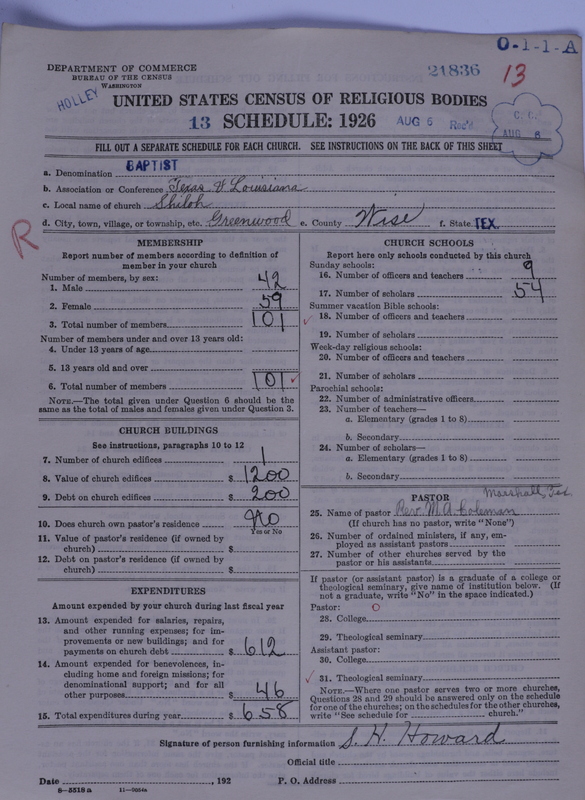 O-1-1-A
DEPARTMENT OF COMMERCE
BUREAU OF THE CENSUS
WASHINGTON
21836
13
HOLLEY
UNITED STATES CENSUS OF RELIGIOUS BODIES
13 SCHEDULE: 1926 AUG 6 Rec'd
C. C.
AUG 6
FILL OUT A SEPARATE SCHEDULE FOR EACH CHURCH. SEE INSTRUCTIONS ON THE BACK OF THIS SHEET
a. Denomination BAPTIST
b. Association or Conference Texas & Louisiana
c. Local name of church Shiloh
d. City, town, village, or township, etc. Greenwood e. County Wise f. State TEX.
R
MEMBERSHIP
Report number of members according to definition of
member in your church
Number of members, by sex:
1. Male 42
2. Female 59
3. Total number of members 101
Number of members under and over 13 years old:
4. Under 13 years of age
5. 13 years old and over
6. Total number of members 101
NOTE.—The total given under Question 6 should be the
same as the total of males and females given under Question 3.
CHURCH BUILDINGS
See instructions, paragraphs 10 to 12
7. Number of church edifices 1
8. Value of church edifices $ 1200
9. Debt on church edifices $ 200
10. Does church own pastor's residence No
Yes or No
11. Value of pastor's residence (if owned by
church) $
12. Debt on pastor's residence (if owned by
church) $
EXPENDITURES
Amount expended by your church during last fiscal year
13. Amount expended for salaries, repairs,
and other running expenses; for im-
provements or new buildings; and for
payments on church debt $ 612
14. Amount expended for benevolences, in-
cluding home and foreign missions; for
denominational support; and for all
other purposes 46
15. Total expenditures during year $ 658
CHURCH SCHOOLS
Report here only schools conducted by this church
Sunday schools:
16. Number of officers and teachers 9
17. Number of scholars 54
Summer vacation Bible schools:
18. Number of officers and teachers
19. Number of scholars
Week-day religious schools:
20. Number of officers and teachers
21. Number of scholars
Parochial schools:
22. Number of administrative officers
23. Number of teachers—
a. Elementary (grades 1 to 8)
b. Secondary
24. Number of scholars—
a. Elementary (grades 1 to 8)
b. Secondary
PASTOR Marshall, Tex.
25. Name of pastor Rev. M. A. Coleman
(If church has no pastor, write "None")
26. Number of ordained ministers, if any, em-
ployed as assistant pastors
27. Number of other churches served by the
pastor or his assistants
If pastor (or assistant pastor) is a graduate of a college or
theological seminary, give name of institution below. (If
not a graduate, write "No" in the space indicated.)
Pastor: O
28. College
29. Theological seminary
Assistant pastor:
30. College
31. Theological seminary
NOTE.—Where one pastor serves two or more churches,
Questions 28 and 29 should be answered only on the schedule
for one of the churches; on the schedules for the other churches,
write "See schedule for church."
Signature of person furnishing information S. H. Howard
Official title
Date , 192 P. O. Address
8-5518 a